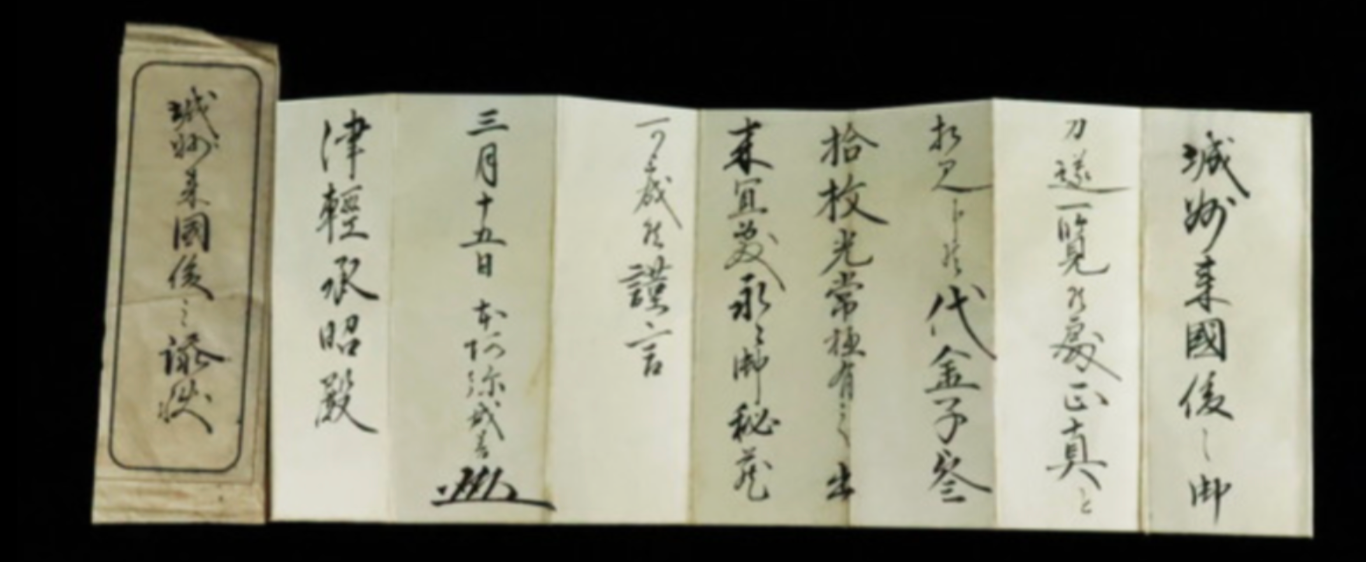 城州来國俊之御
刀遂一覧候處正真と
相見申候代金子参
拾枚光常極有之出
来宜敷永々御秘蔵
可被成候謹言
三月十五日 本阿弥成善
津輕承昭殿
城州来國俊之證状